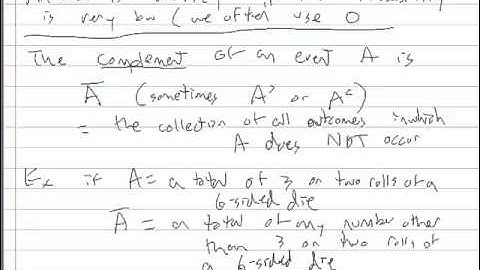 is very low (we often use 0
The complement of an event A is
A̅ (sometimes A' or Aᶜ)
= the collection of all outcomes in which
A does NOT occur
Ex if A = a total of 3 on two rolls of a
6-sided die
A̅ = a total of any number other
than 3 on two rolls of
a 6-sided die